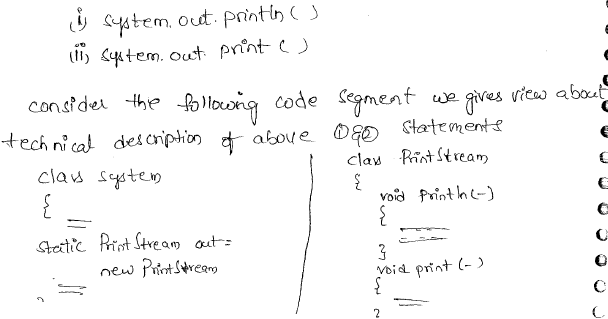 (i) system. out. println ( )
(ii) system. out. print ( )
consider the following code segment we gives view about
technical description of above ①&② statements
class system
{
static PrintStream out =
new PrintStream
class PrintStream
{
void println (-)
{
}
void print (-)
{
}